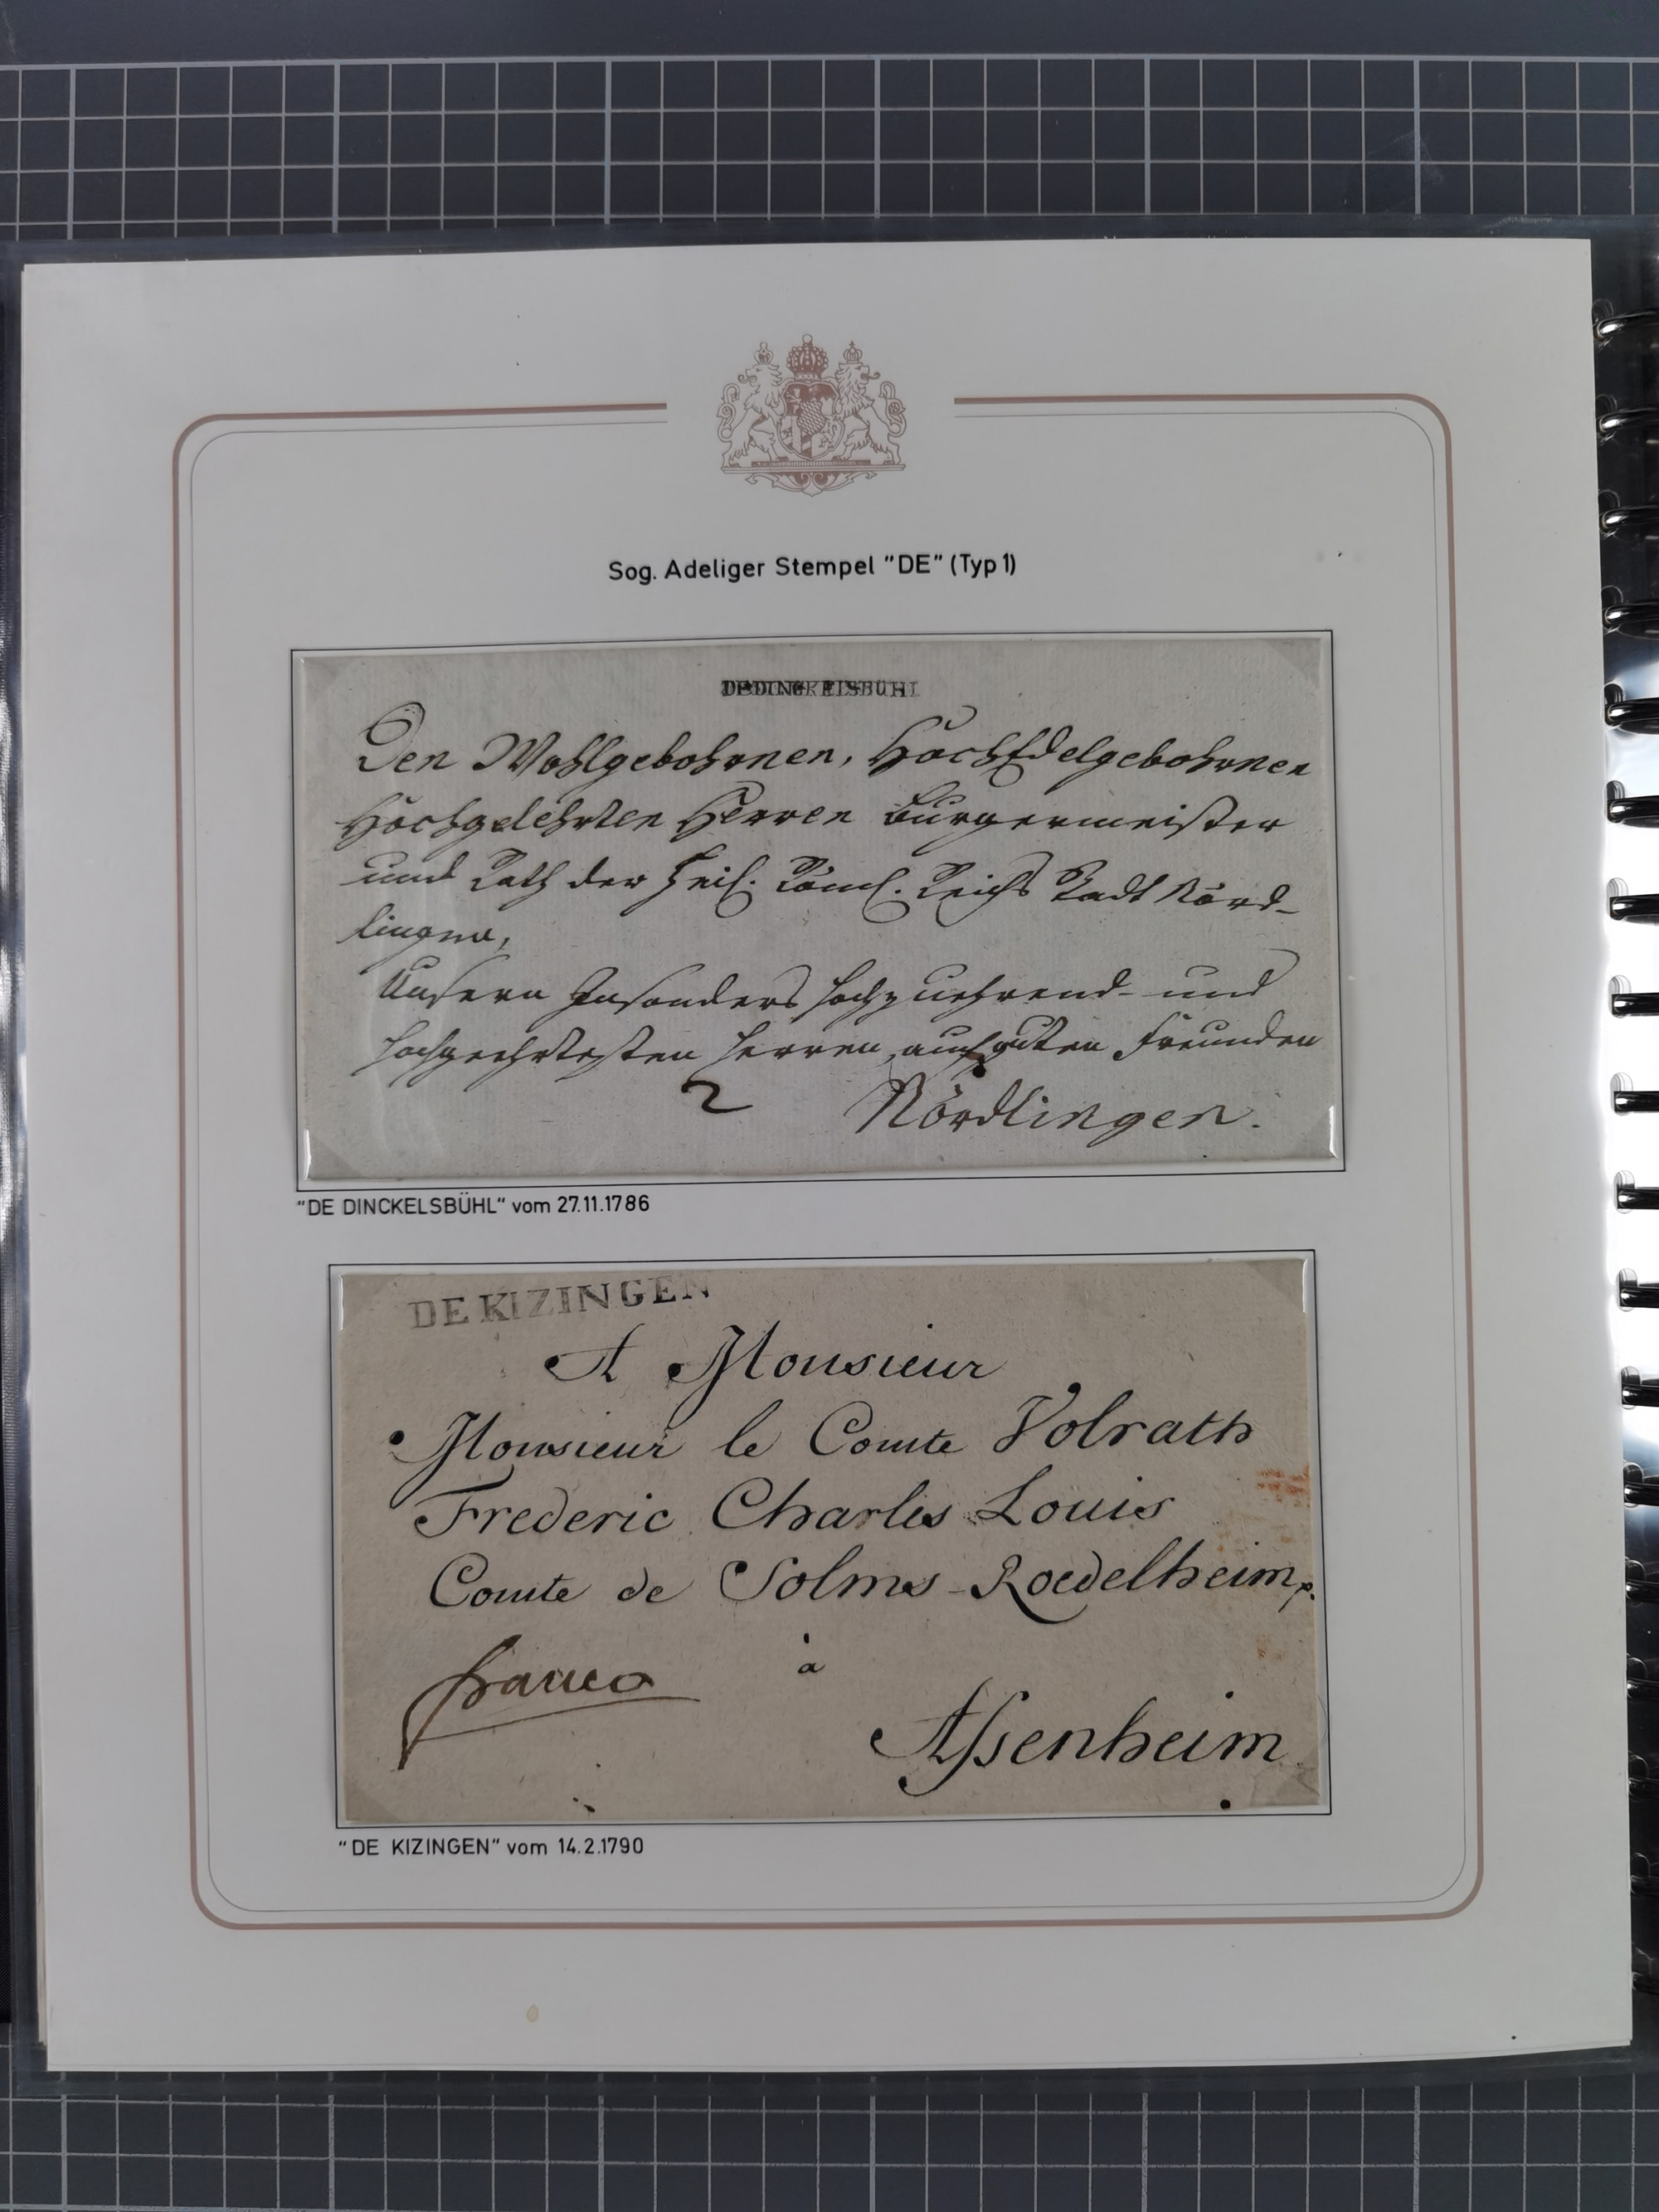 Sog. Adeliger Stempel "DE" (Typ 1)
DE DINCKELSBÜHL
Den Wohlgebohrnen, HochEdelgebohrnen
Hochgelehrten Herren Burgermeister
und Rath der Heil. Röml. Reichs Stadt Nörd-
lingen,
Unsern Insonders hochzuehrend- und
hochgeehrtesten Herren, auch guten Freunden
2
Nördlingen.
"DE DINCKELSBÜHL" vom 27.11.1786
DE KIZINGEN
A Monsieur
Monsieur le Comte Volrath
Frederic Charles Louis
Comte de Solms-Roedelheim
à
franco
Assenheim
"DE KIZINGEN" vom 14.2.1790